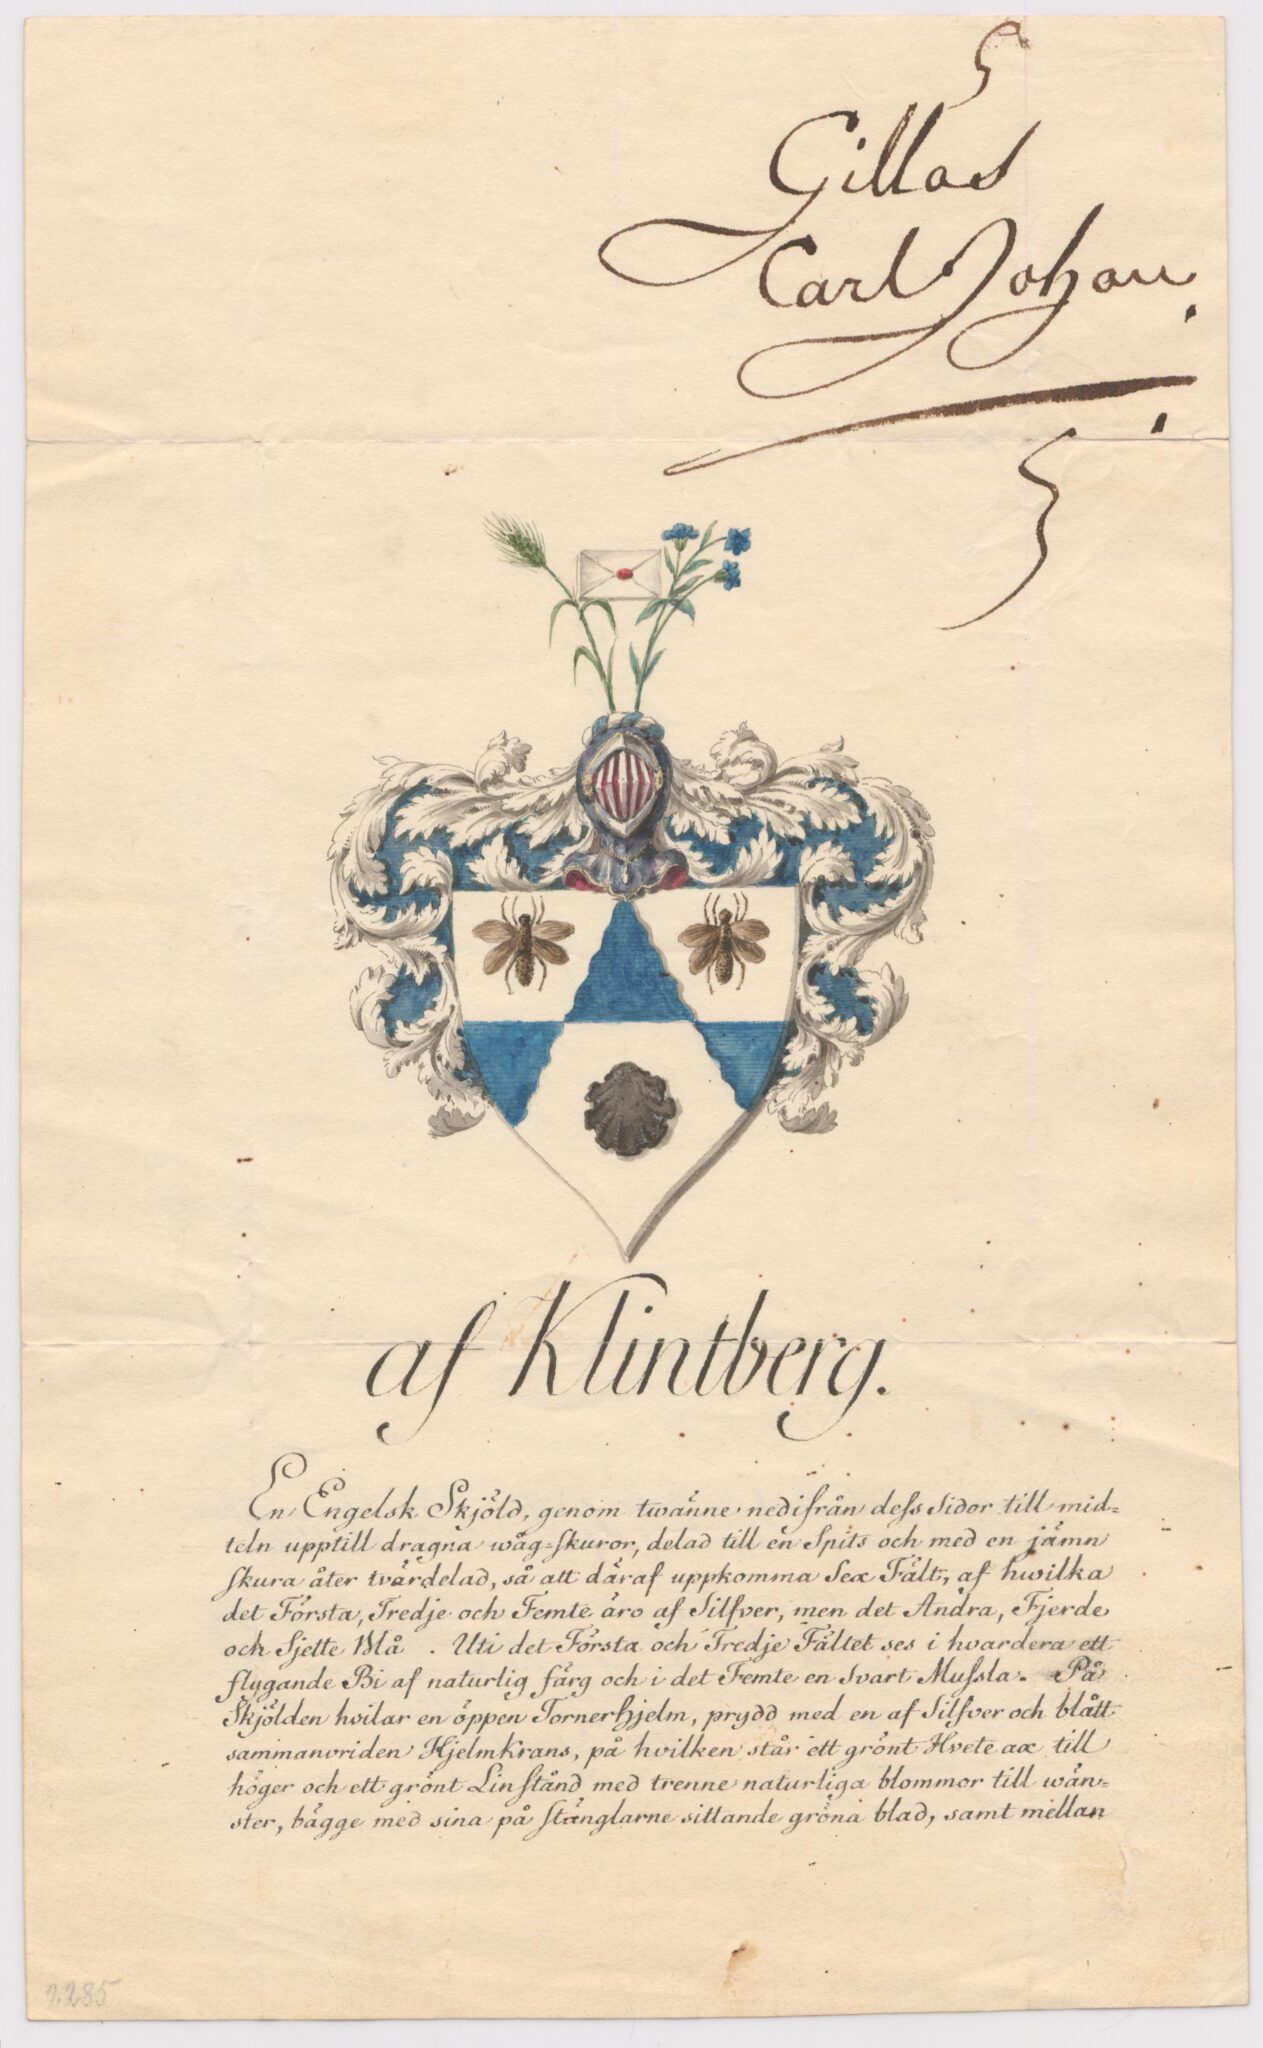 Gillas
Carl Johan
af Klintberg.
En Engelsk Skjöld, genom twänne nedifrån dess Sidor till mid=
teln upptill dragna wåg=skuror, delad till en Spits och med en jämn
skura åter tvärdelad, så att däraf uppkomma Sex Fält, af hwilka
det Första, Tredje och Femte äro af Silfver, men det Andra, Fjerde
och Sjette Blå. Uti det Första och Tredje Fältet ses i hvardera ett
flygande Bi af naturlig färg och i det Femte en Svart Mussla. På
Skjölden hvilar en öppen Tornerhjelm, prydd med en af Silfver och blått
sammanvriden Hjelmkrans, på hvilken står ett grönt Hvete ax till
höger och ett grönt Linstånd med trenne naturliga blommor till wän=
ster, bägge med sina på stänglarne sittande gröna blad, samt mellan
2285